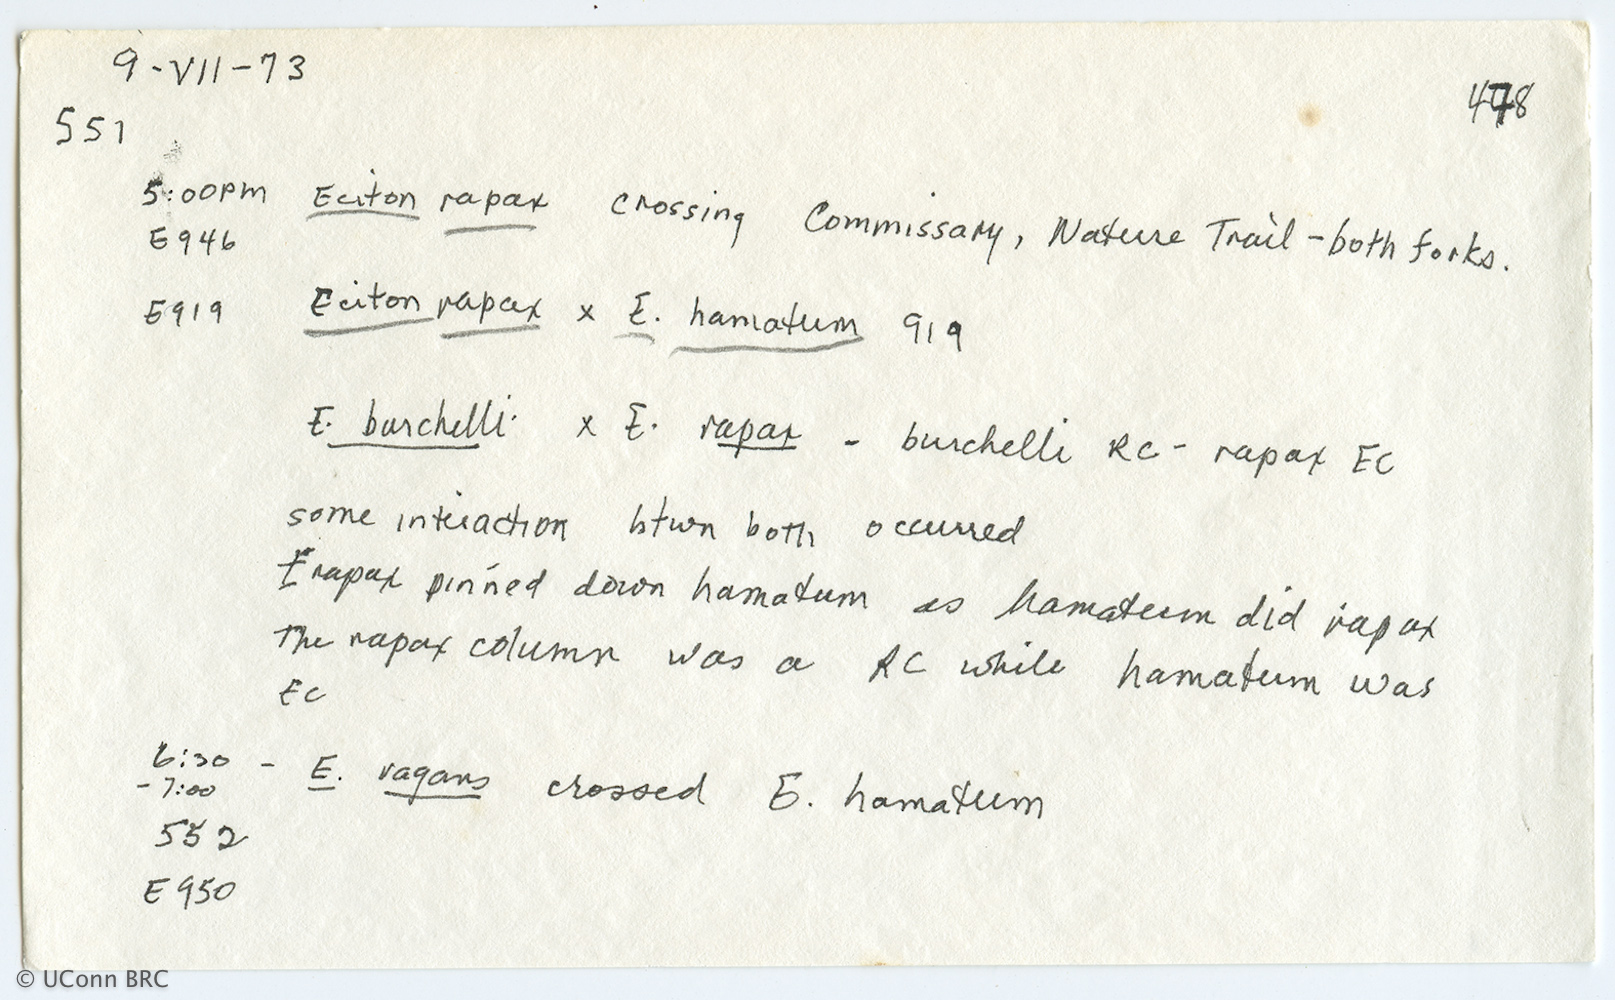 9-VII-73
478
551
5:00pm Eciton rapax crossing Commissary, Nature Trail - both forks.
E946
E919 Eciton rapax x E. hamatum 919
E. burchelli x E. rapax - burchelli RC - rapax EC
some interaction btwn both occurred
E rapax pinned down hamatum as hamatum did rapax
The rapax column was a RC while hamatum was
EC
6:30 - E. vagans crossed E. hamatum
-7:00
552
E950
© UConn BRC